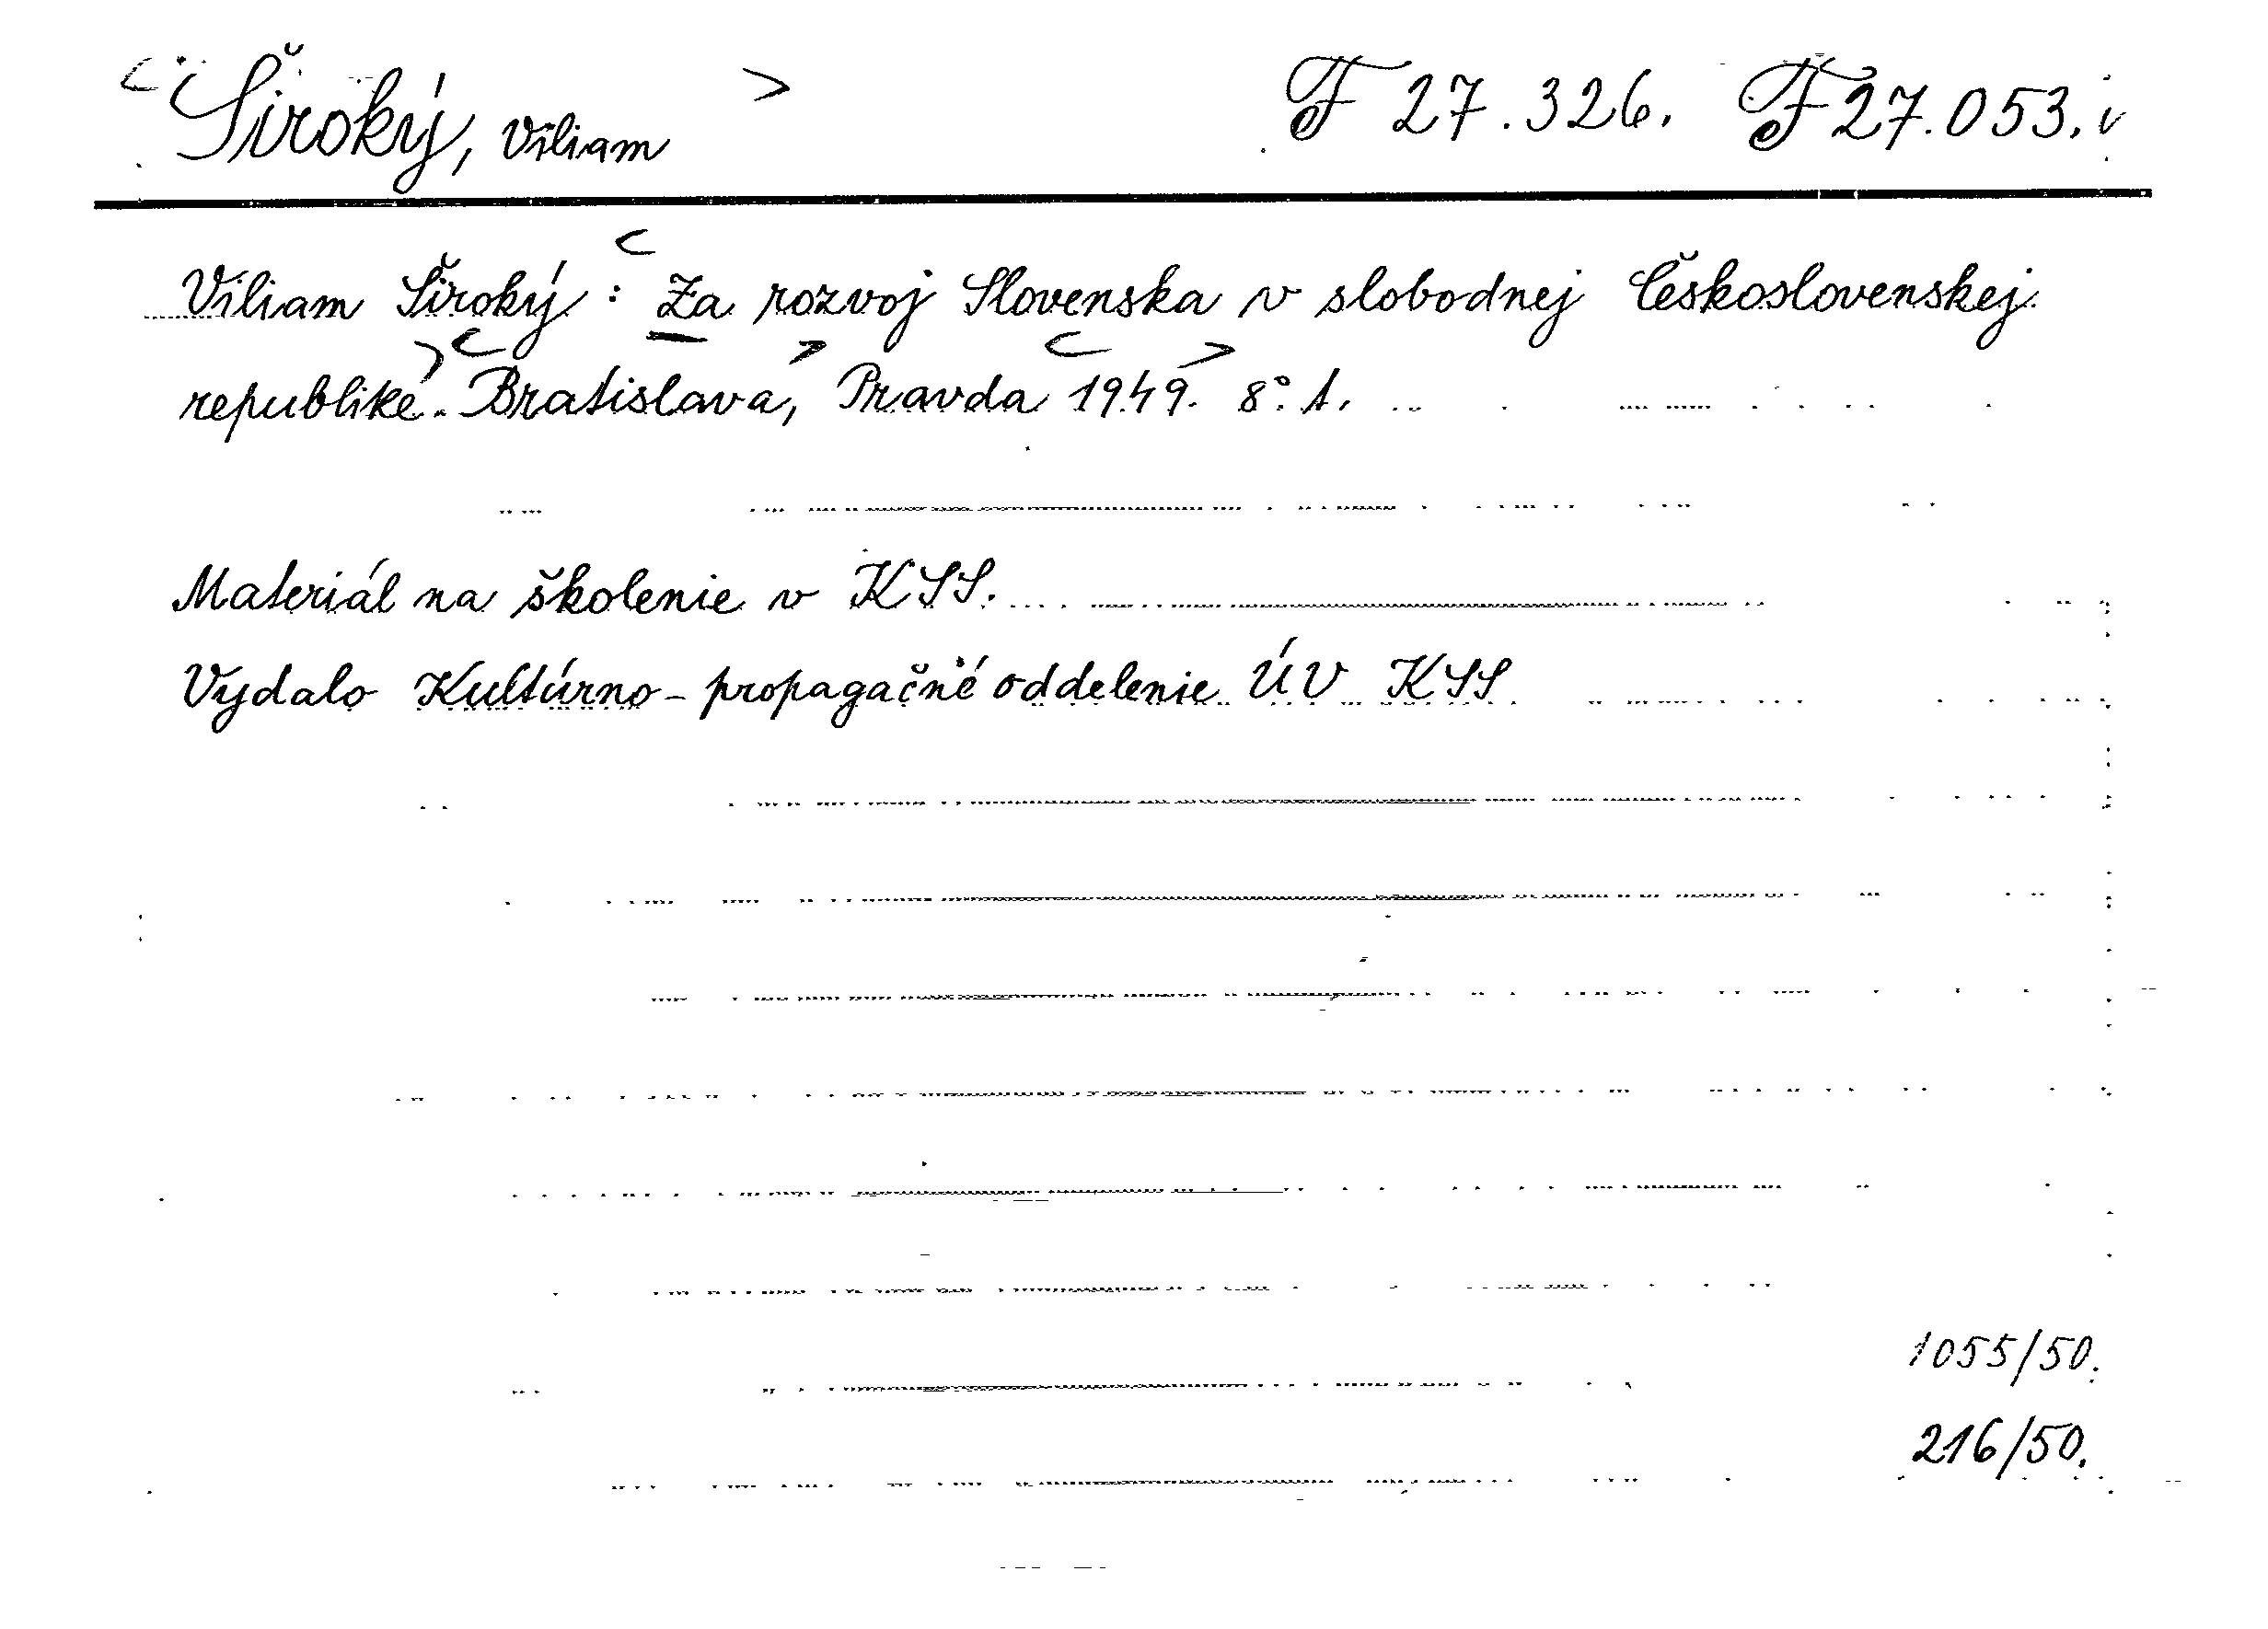 Široký, Viliam F 27.326. F 27.053. v
Viliam Široký: Za rozvoj Slovenska v slobodnej Československej
republike. Bratislava, Pravda 1949. 8°. 1.
Materiál na školenie v KSS.
Vydalo Kultúrno-propagačné oddelenie ÚV KSS
1055/50.
216/50.